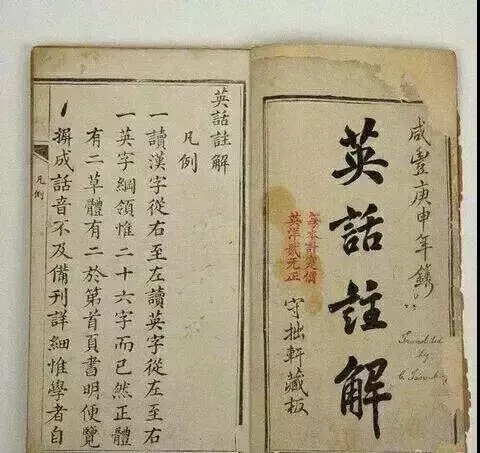 咸豐庚申年鐫
Translated
by
英話註解
每本計實價
英洋貳元正
守拙軒藏板
英話註解
凡例
一讀漢字從右至左讀英字從左至右
一英字綱領惟二十六字而已然正體
有二草體有二於第首頁書明便覽
撰成話音不及備刊詳細惟學者自
凡例